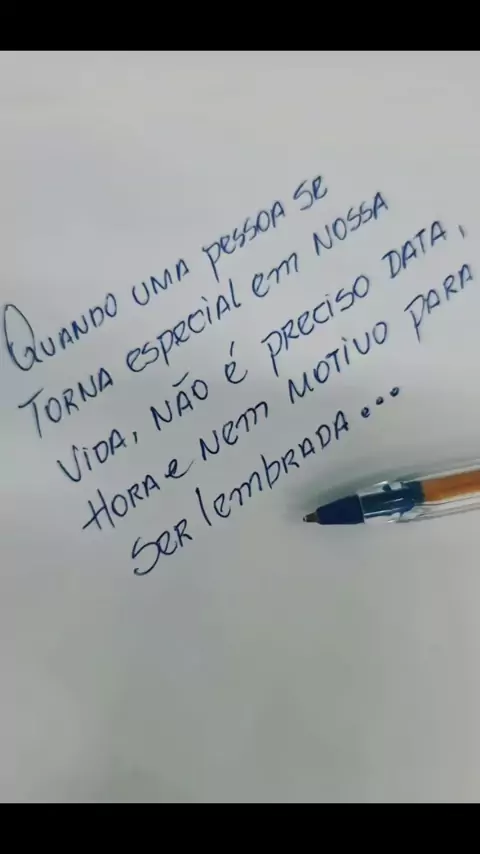 QUANDO UMA PESSOA SE
TORNA ESPECIAL EM NOSSA
VIDA, NÃO É PRECISO DATA,
HORA E NEM MOTIVO PARA
SER LEMBRADA...